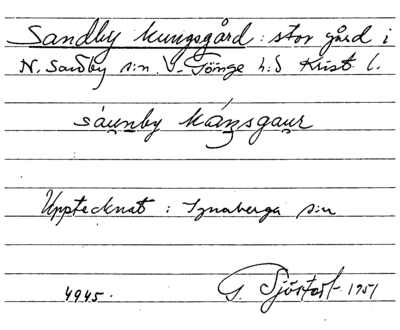 Sandby kungsgård: stor gård i
N. Sandby s:n V. Göinge h:d Krist. l.
sáu̯nby káŋsgau̯r
Upptecknat i Ignaberga s:n
4945. G. Sjöstedt 1951